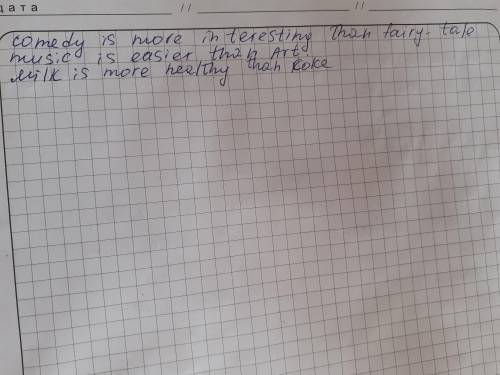 дата // //
comedy is more interesting than fairy-tale
music is easier than Art.
Milk is more healthy than Koke